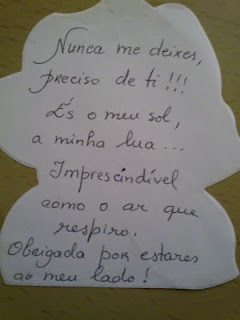 Nunca me deixes,
preciso de ti!!!
És o meu sol,
a minha lua...
Imprescindível
como o ar que
respiro.
Obrigada por estares
ao meu lado!